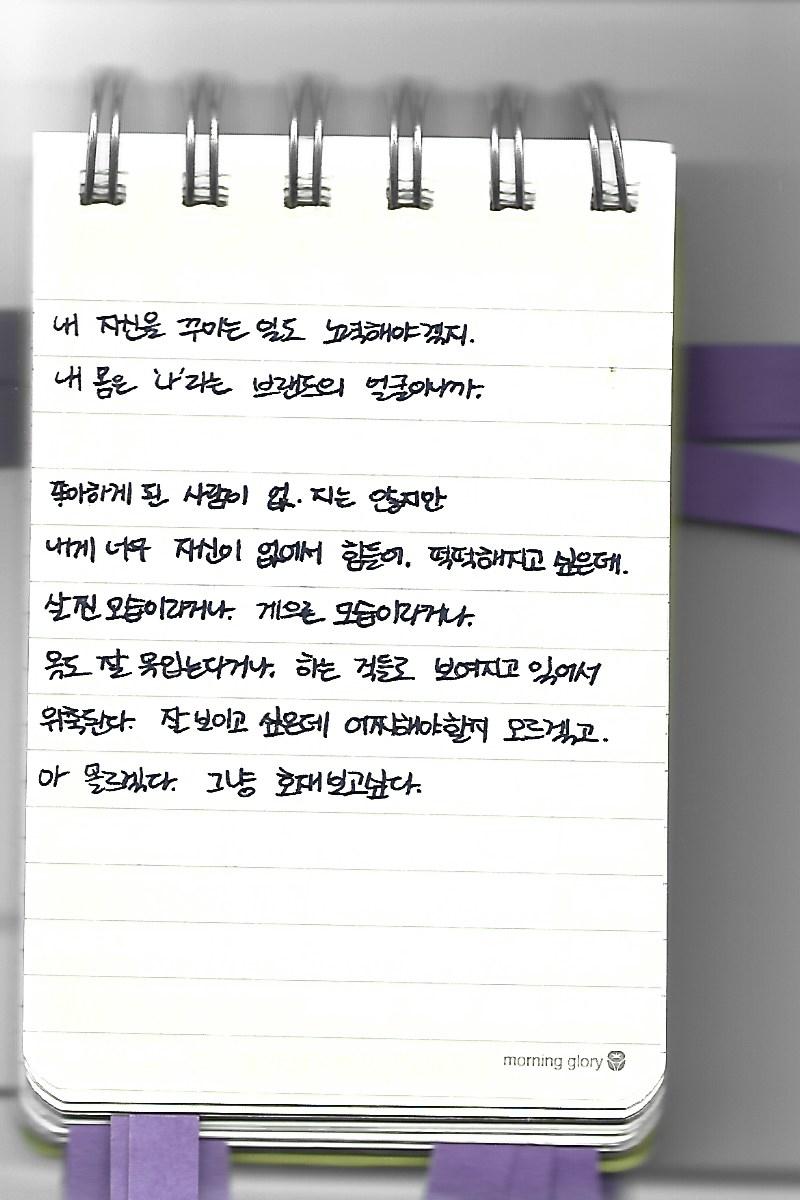 내 자신을 꾸미는 일도 노력해야겠지.
내 몸은 '나'라는 브랜드의 얼굴이니까.
좋아하게 된 사람이 없. 지는 않지만
내게 너무 자신이 없어서 힘들어. 떡떡해지고 싶은데.
살찐 모습이라거나. 게으른 모습이라거나.
옷도 잘 못입는다거나. 하는 것들로 보여지고 있어서
위축된다. 잘보이고 싶은데 어찌해야할지 모르겠고.
아 몰르겠다. 그냥 보고싶다.
morning glory